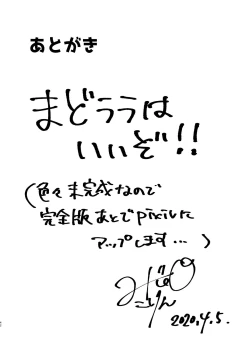 あとがき
まどうらは
いいぞ!!
(色々未完成なので
完全版あとでpixivに
アップします…)
こりん
2020.4.5.